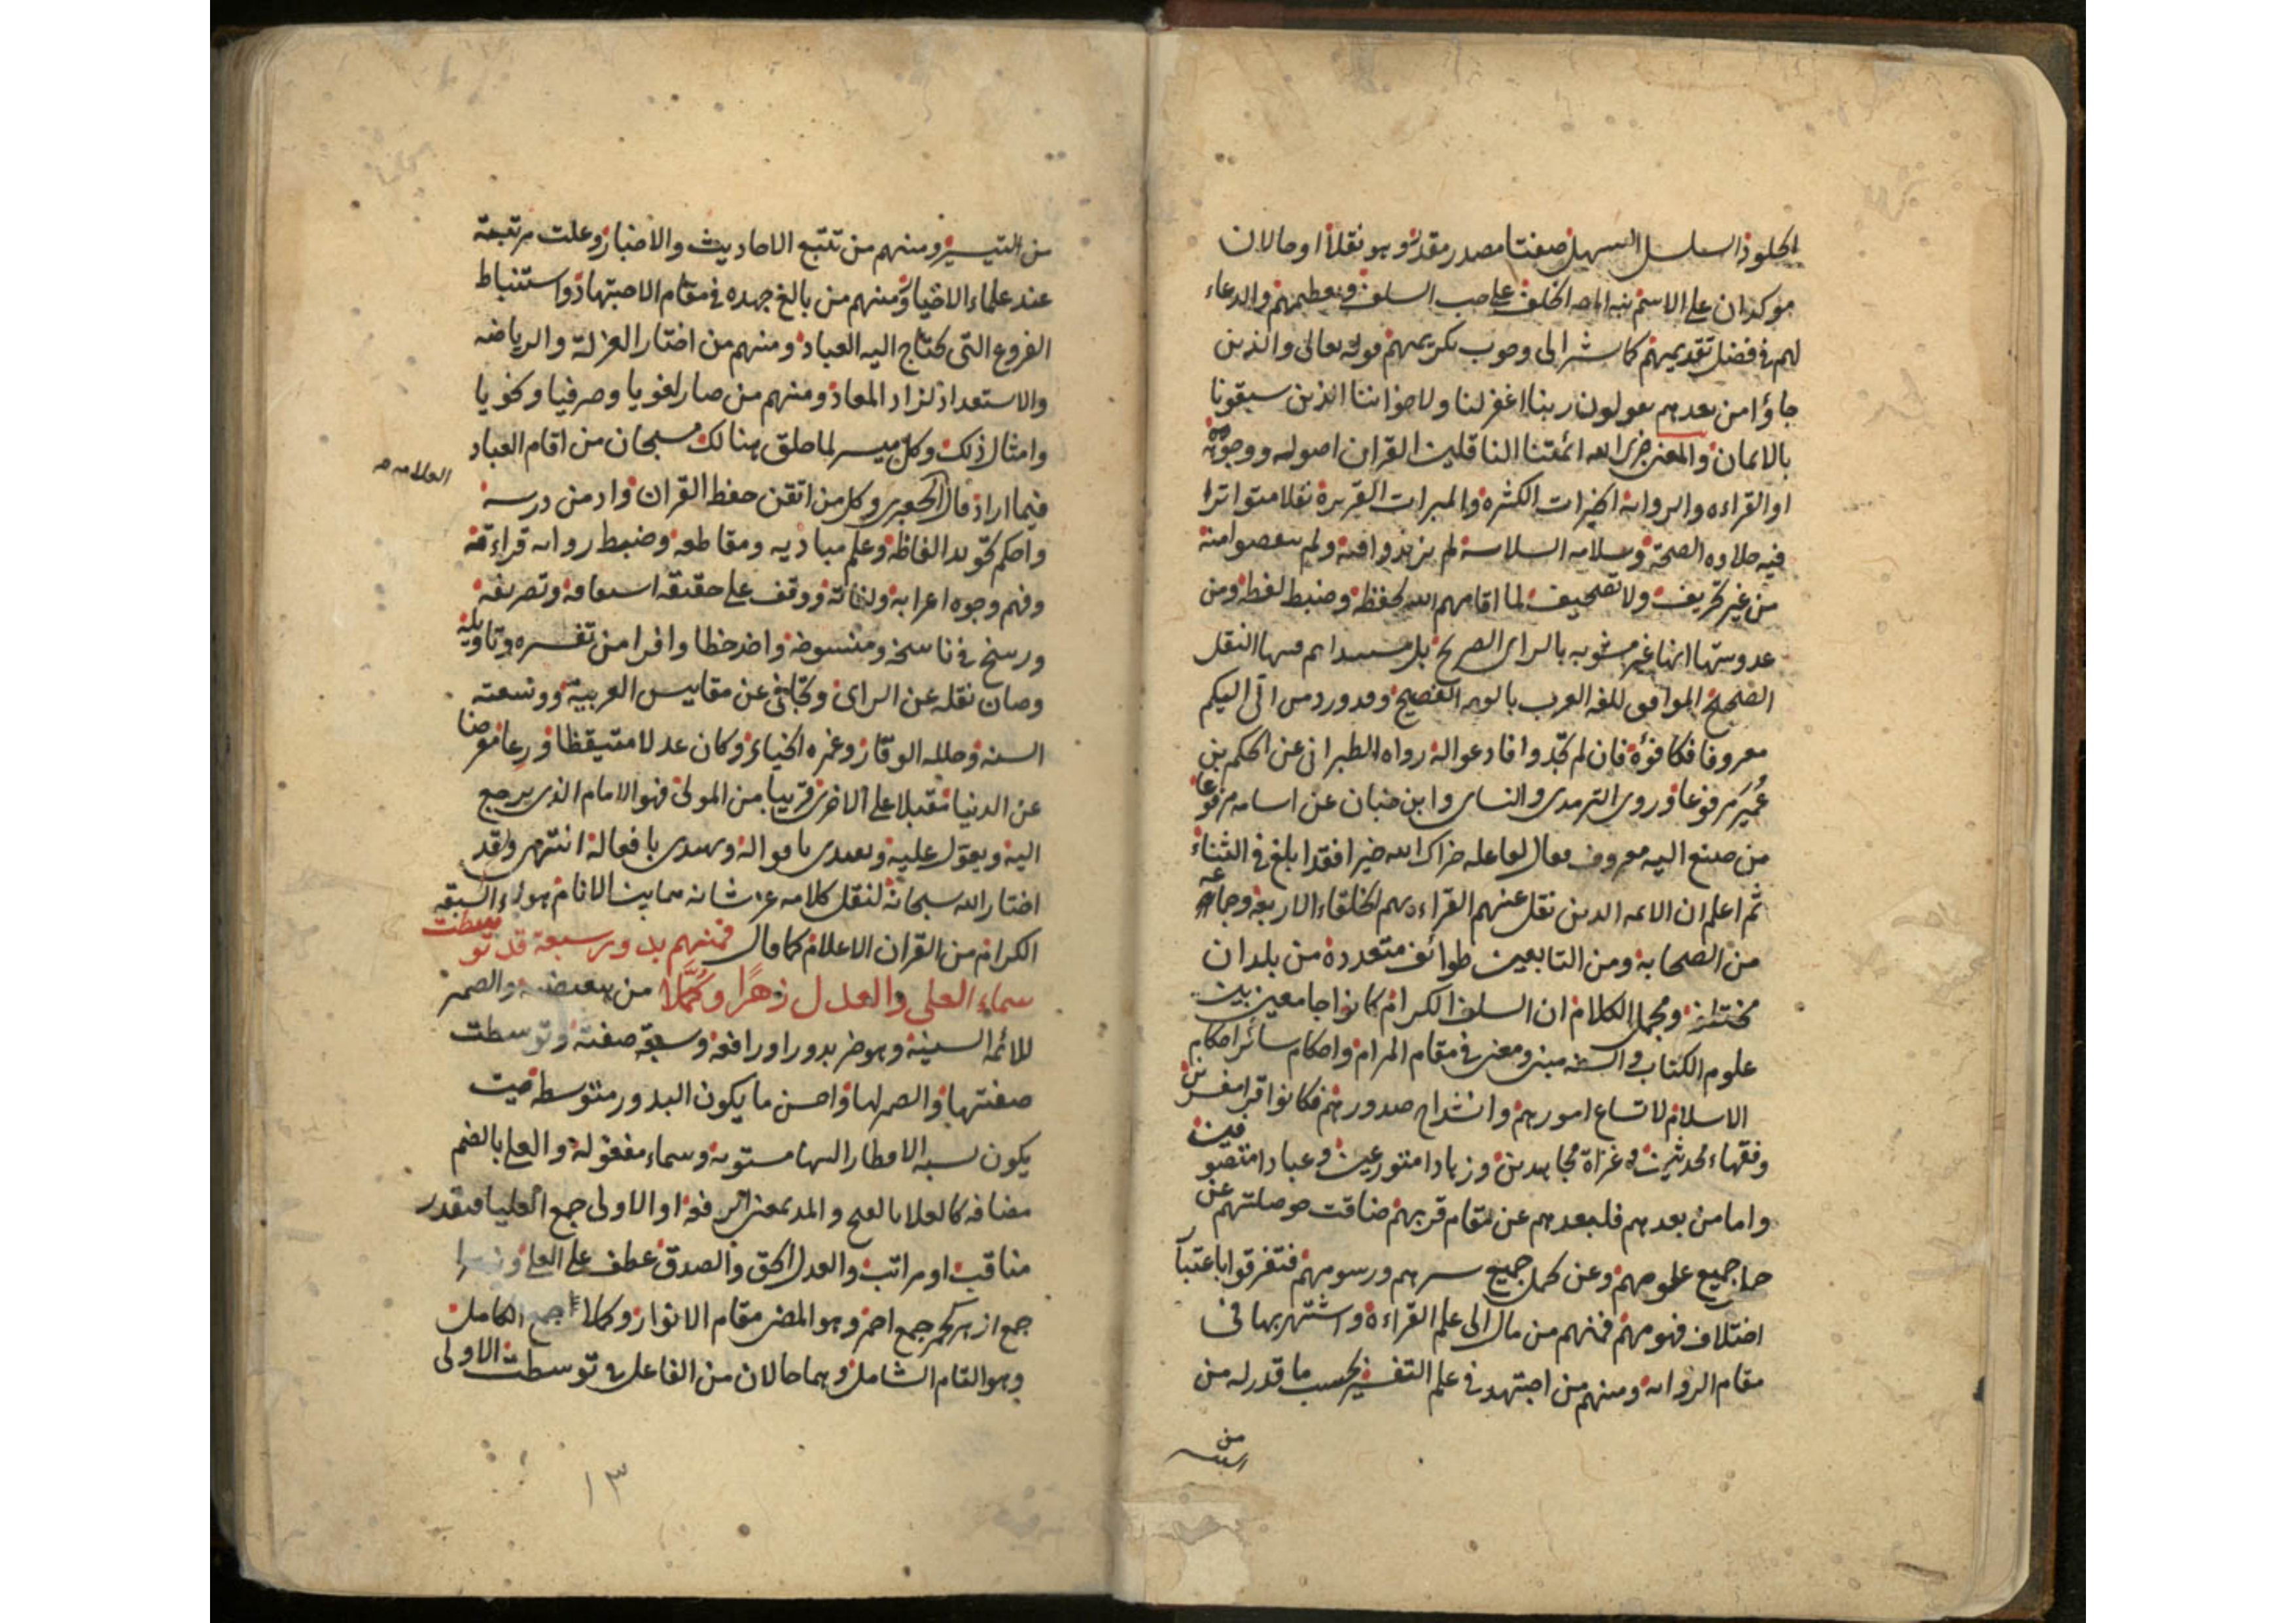 الحلو ذا السلسل السهل صفتا مصدر مقدر وهو نقلا او حالان
موكدان على الاسم نبه المص الخلف على حب السلف وتعظيمهم والدعاء
لهم في فضل تقديمهم كما اشر الى وجوب تكريمهم قوله تعالى والذين
جاؤا من بعدهم يقولون ربنا اغفر لنا ولاخواننا الذين سبقونا
بالايمان والمعنى جزى الله ائمتنا الناقلين القران اصوله ووجوهه
او القراءه والروايه الخيرات الكثيره والمبرات الغزيرة نقلا متواترا
فيه حلاوه الصحة وسلامه السلاسة لم يزيدوا فيه ولم ينقصوا منه
من غير تحريف ولا تصحيف لما اقامهم الله لحفظه وضبط لفظه ومن
عذوبتها انها غير مشوبه بالراي الصريح بل مستندهم فيها النقل
الصحيح الموافق للغه العرب بالوجه الفصيح وقد ورد من اتى اليكم
معروفا فكافؤه فان لم تجدوا فادعوا له رواه الطبراني عن الحكم بن
عمير مرفوعا وروى الترمذى والنساى وابن حبان عن اسامه مرفوعا
من صنع اليه معروف فقال لفاعله جزاك الله خيرا فقد ابلغ في الثناء
ثم اعلم ان الائمه الذين نقل عنهم القراءه هم الخلفاء الاربعه وجماعه
من الصحابة ومن التابعين طوائف متعددة من بلدان
مختلفه ومجمل الكلام ان السلف الكرام كانوا جامعين بين
علوم الكتاب والسنه مبنى ومعنى في مقام المرام واحكام سائر احكام
الاسلام لاتساع امورهم وانشراح صدورهم فكانوا قراء مفسرين
وفقهاء محدثين وغزاة مجاهدين وزهادا متورعين وعبادا متصوفين
واما من بعدهم فلبعدهم عن مقام قربهم ضاقت حوصلتهم عن
جميع علومهم وعن كمل جميع سرهم ورسومهم فتفرقوا باعتبا
اختلاف فهومهم فمنهم من مال الى علم القراءة واشتهر بها في
مقام الروايه ومنهم من اجتهد في علم التفسير بحسب ما قدر له من
من
من التيسير ومنهم من تتبع الاحاديث والاخبار وعلت مرتبته
عند علماء الاخيار ومنهم من بالغ جهده في مقام الاجتهاد واستنباط
الفروع التى يحتاج اليه العباد ومنهم من اختار العزلة والرياضه
والاستعداد لزاد المعاد ومنهم من صار لغويا وصرفيا ونحويا
وامثال ذلك وكل ميسر لما خلق هنالك سبحان من اقام العباد
فيما اراد قال الجعبرى وكل من اتقن حفظ القران وادمن درسه
العلامه
واحكم تجويد الفاظه وعلم مباديه ومقاطعه وضبط روايه قراءته
وفهم وجوه اعرابه ولغاته ووقف على حقيقه اشتقاقه وتصريفه
ورسخ في ناسخه ومنسوخه واخذ حظا وافرا من تفسيره وتاويله
وصان نقله عن الراى وتجافى عن مقاييس العربية ووسعته
السنه وجلله الوقار وغمره الحياء وكان عدلا متيقظا ورعا معرضا
عن الدنيا مقبلا على الاخرى قريبا من المولى فهو الامام الذى يرجع
اليه ويعول عليه ويقتدى باقواله ويهتدى بافعاله انتهى ولقد
اختار الله سبحانه لنقل كلامه عز شانه فيما بين الانام هولاء السبعه
الكرام من القران الاعلام كما قال فمنهم بدور سبعة قد توسطت
سماء العلى والعدل زهرا وكملا من تبعيضيه والضمير
للائمه السبعه وهو خبر بدور او رافعه وسبعة صفته وتوسطت
صفتها والضمير لها واحسن ما يكون البدور متوسطه حيث
يكون نسبه الاقطار اليها مستويه وسماء مفعوله والعلى بالضم
مضافه كالعلا بالفتح والمد بمعنى الرفعه او الاولى جمع العليا فيقدر
مناقب او مراتب والعدل الحق والصدق عطف على العلى وزهرا
جمع ازهر كحمر جمع احمر وهو المضى مقام الانوار وكملا جمع الكامل
وهو التام الشامل وهما حالان من الفاعل في توسطت الاولى
١٣